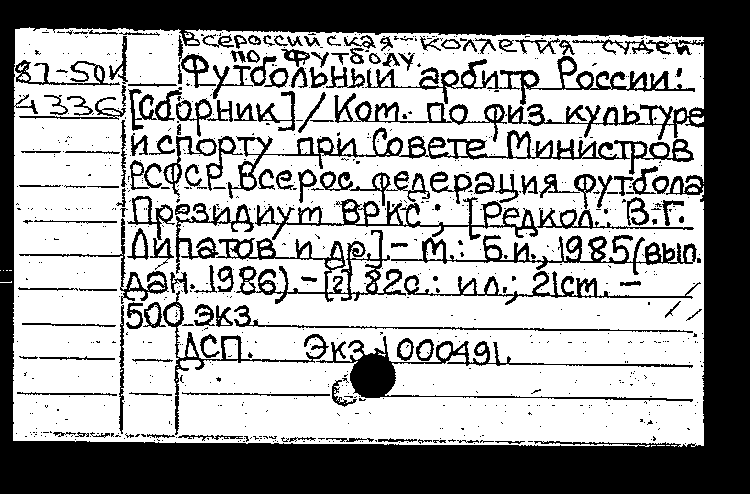 Всероссийская коллегия судей
по футболу
87-50к Футбольный арбитр России:
4336 [Сборник] / Ком. по физ. культуре
и спорту при Совете Министров
РСФСР, Всерос. федерация футбола,
Президиум ВРКС; [Редкол.: В.Г.
Липатов и др.]. - М.: Б.и., 1985 (вып.
дан. 1986). - [2], 82с.: ил.; 21см. -
500 экз.
ДСП. Экз. 1000491.